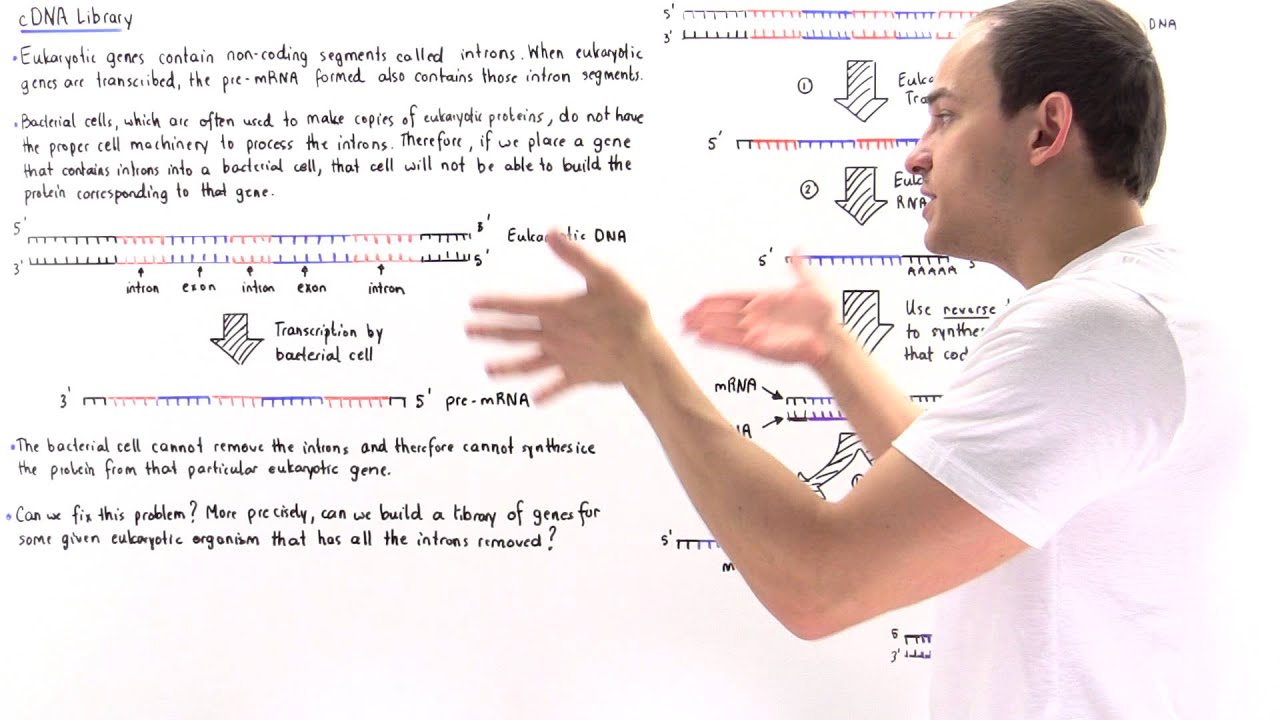 cDNA Library
• Eukaryotic genes contain non-coding segments called introns. When eukaryotic
genes are transcribed, the pre-mRNA formed also contains those intron segments.
• Bacterial cells, which are often used to make copies of eukaryotic proteins, do not have
the proper cell machinery to process the introns. Therefore, if we place a gene
that contains introns into a bacterial cell, that cell will not be able to build the
protein corresponding to that gene.
5' 3'
Eukaryotic DNA
3' 5'
intron exon intron exon intron
Transcription by
bacterial cell
3' 5' pre-mRNA
• The bacterial cell cannot remove the introns and therefore cannot synthesice
the protein from that particular eukaryotic gene.
• Can we fix this problem? More precisely, can we build a library of genes for
some given eukaryotic organism that has all the introns removed?
5'
DNA
3'
1
5'
2
RNA
5' 3'
AAAAA
Use reverse
to
that
mRNA
5'
5
3'